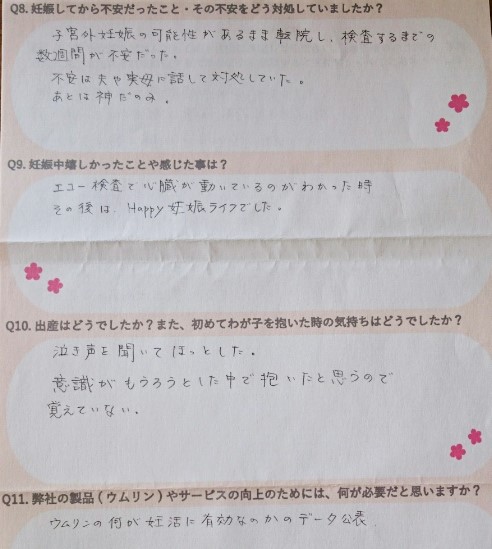 Q8. 妊娠してから不安だったこと・その不安をどう対処していましたか?
子宮外妊娠の可能性があるまま転院し、検査するまでの
数週間が不安だった。
不安は夫や実母に話して対処していた。
あとは神だのみ。
Q9. 妊娠中嬉しかったことや感じた事は?
エコー検査で心臓が動いているのがわかった時
その後は、Happy妊娠ライフでした。
Q10. 出産はどうでしたか?また、初めてわが子を抱いた時の気持ちはどうでしたか?
泣き声を聞いてほっとした。
意識がもうろうとした中で抱いたと思うので
覚えていない。
Q11. 弊社の製品(ウムリン)やサービスの向上のためには、何が必要だと思いますか?
ウムリンの何が妊活に有効なのかのデータ公表